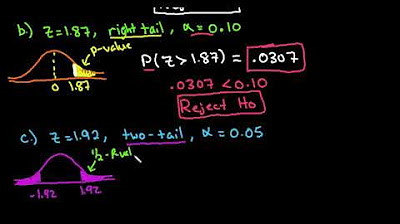 b.) Z=1.87, right tail, α=0.10
p-value
P(Z>1.87) = .0307
0 1.87
.0307 < 0.10
Reject Ho
c.) Z=1.92, two-tail, α=0.05
1/2-P.val
-1.92 1.92